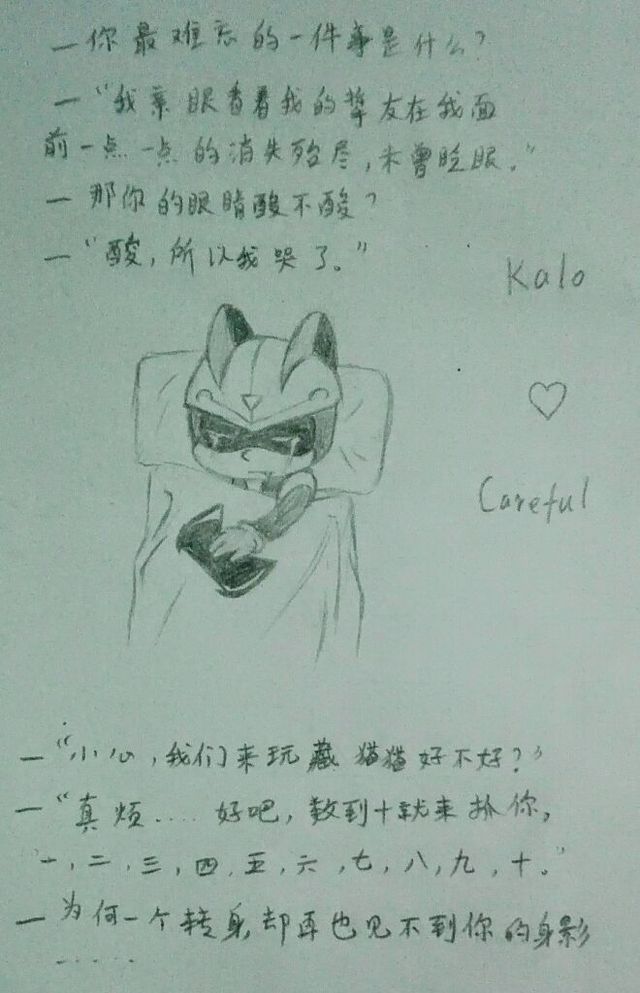 — 你最难忘的一件事是什么?
— “我亲眼看着我的挚友在我面
前一点一点的消失殆尽,未曾眨眼。”
— 那你的眼睛酸不酸?
— “酸,所以我哭了。”
Kalo
♡
Careful
— “小心,我们来玩藏猫猫好不好?”
— “真烦.... 好吧,数到十就来抓你,
“一,二,三,四,五,六,七,八,九,十。”
— 为何一个转身,却再也见不到你的身影
......